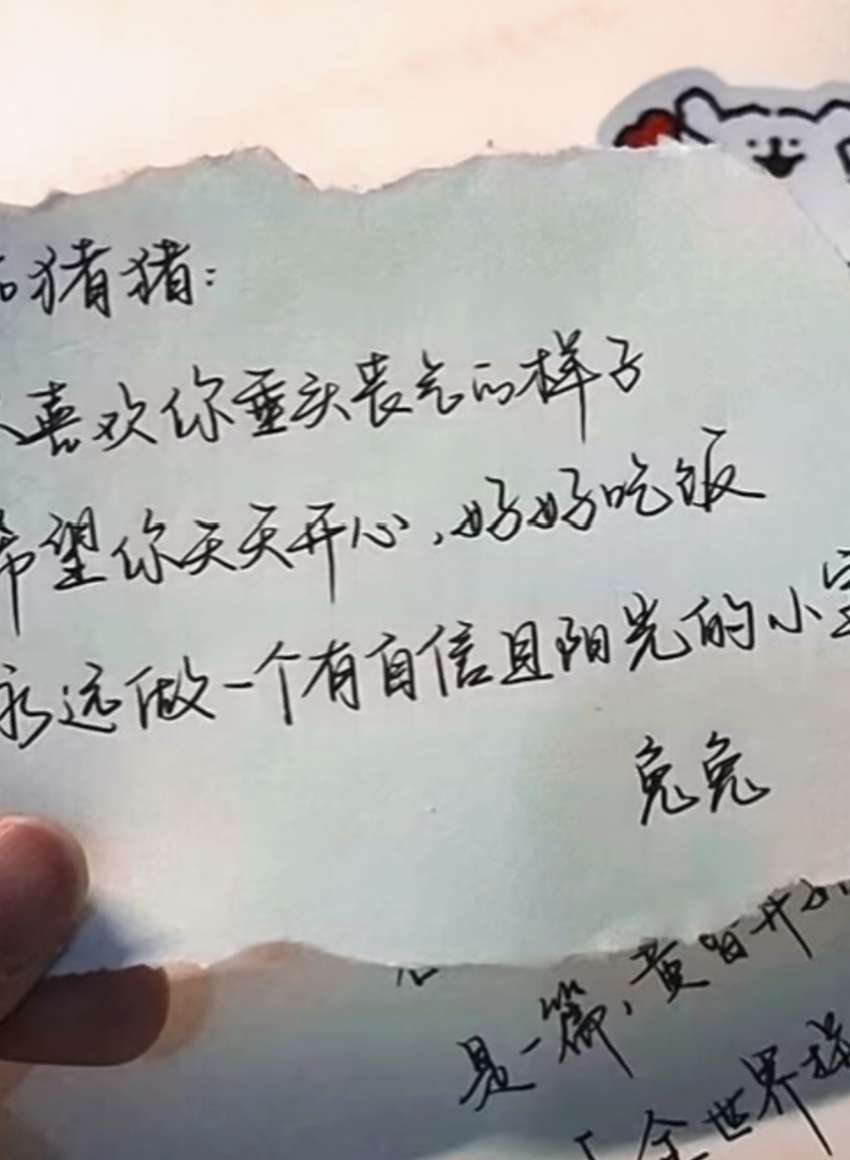 猪猪：
喜欢你垂头丧气的样子
希望你天天开心，好好吃饭
永远做一个有自信且阳光的小
兔兔
是一篇，黄昏开
全世界